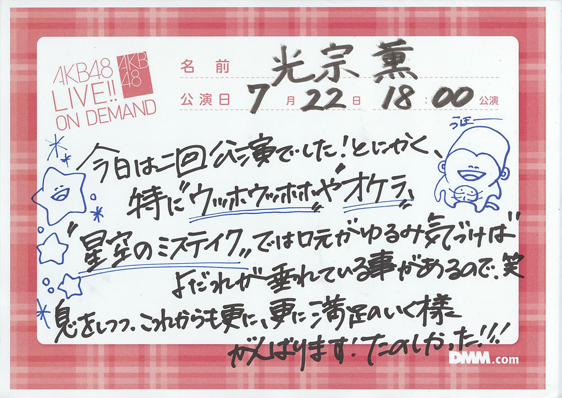 AKB48
LIVE!!
ON DEMAND
AKB
48
名前 光宗薫
公演日 7月22日 18:00公演
うほー
今日は二回公演でした！とにかく、
特に"ウッホウッホホ"や"オケラ"、
"星空のミステイク"では口元がゆるみ気づけば
よだれが垂れている事があるので、笑
息をしつつ、これからも更に、更に満足のいく様
がんばります！たのしかった!!!
DMM.com